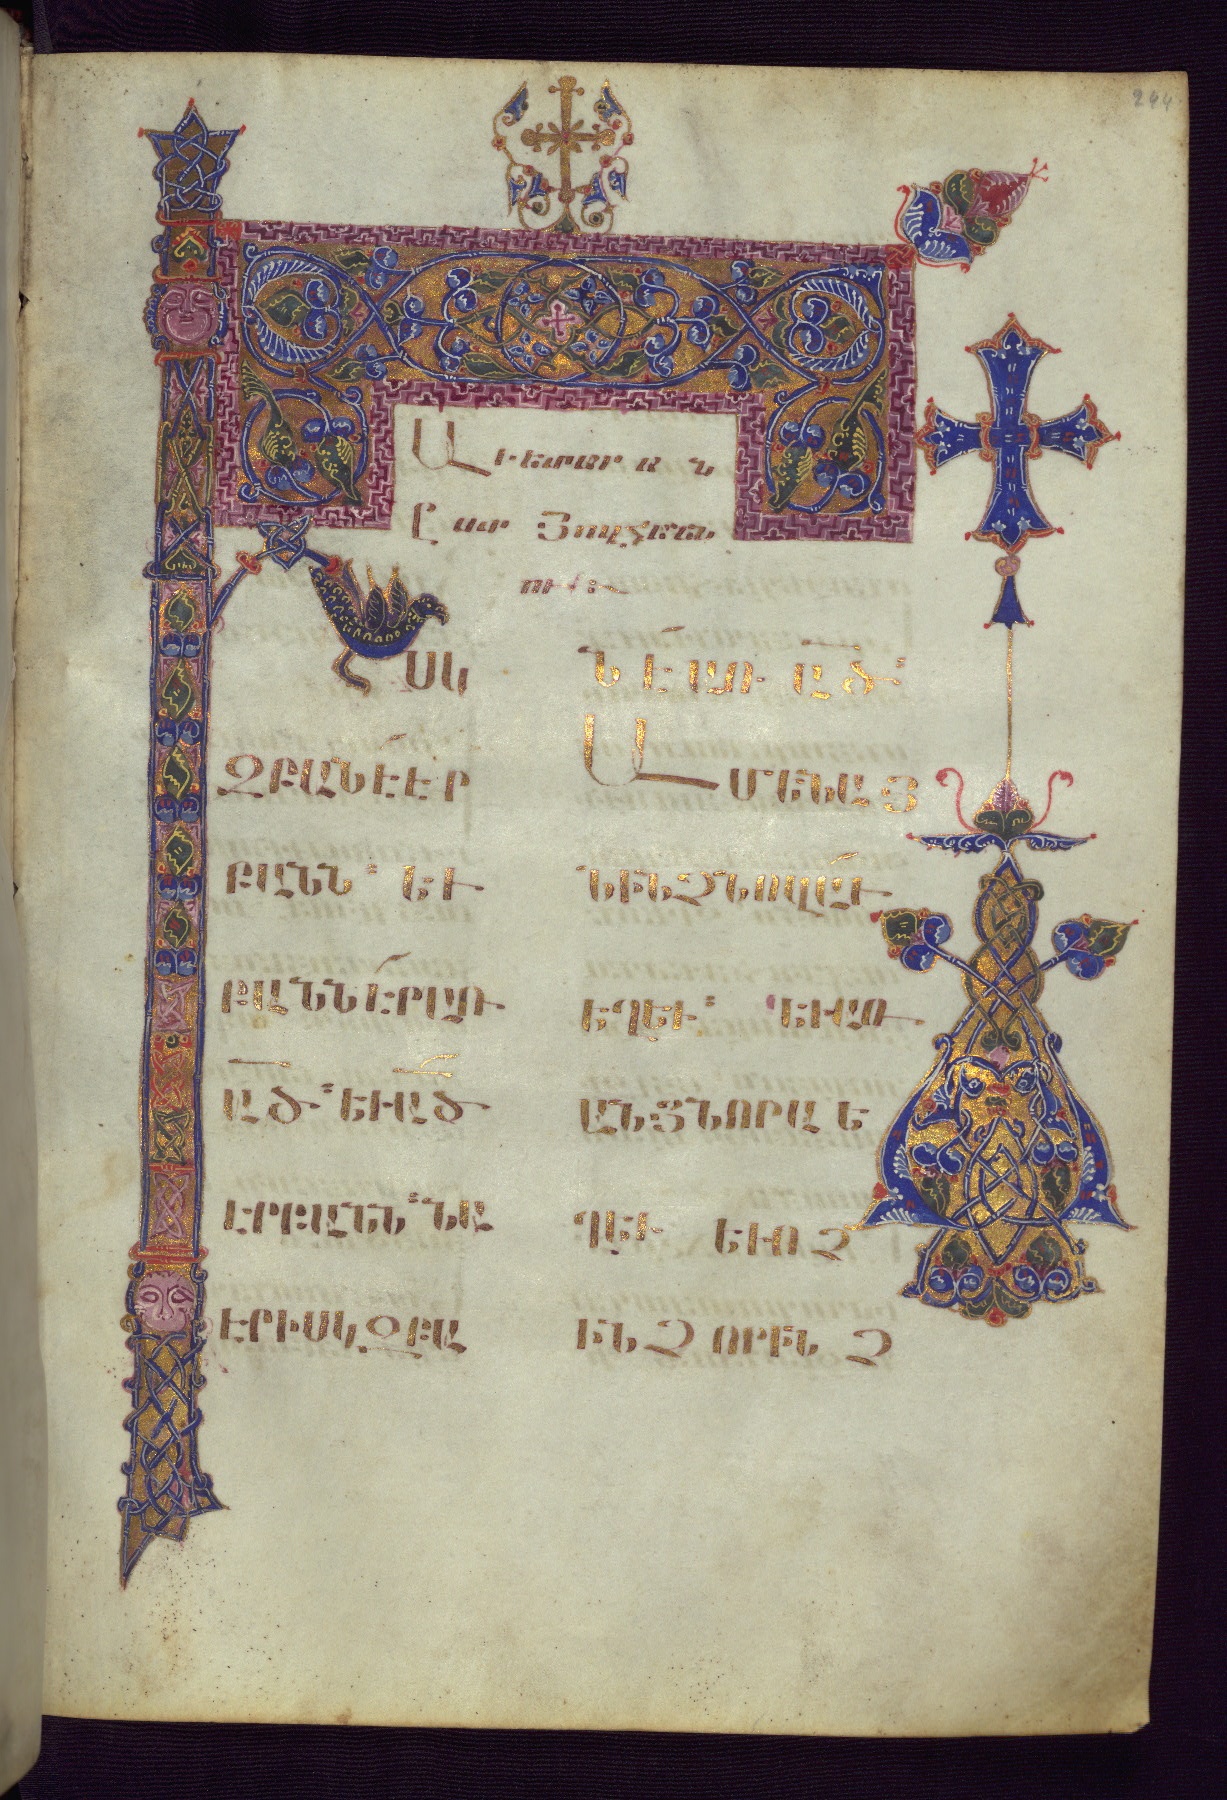 244
Աւետարան
Ըստ Յովհանն
ու:
Ի ՍԿ
ԶԲԱՆԷ ԷՐ
ԲԱՆՆ: ԵՒ
ԲԱՆՆ ԷՐ ԱՌ
ԱԾ: ԵՒ ԱԾ
ԷՐ ԲԱՆՆ: ՆԱ
ԷՐ Ի ՍԿԶԲԱ
ՆԷ ԱՌ ԱԾ:
ԱՄԵՆԱՅ
Ն ԻՆՉ ՆՈՎԱՒ
ԵՂԵՒ: ԵՒ ԱՌ
ԱՆՑ ՆՈՐԱ Ե
ՂԵՒ ԵՒ ՈՉ
ԻՆՉ ՈՐ ԻՆՉ